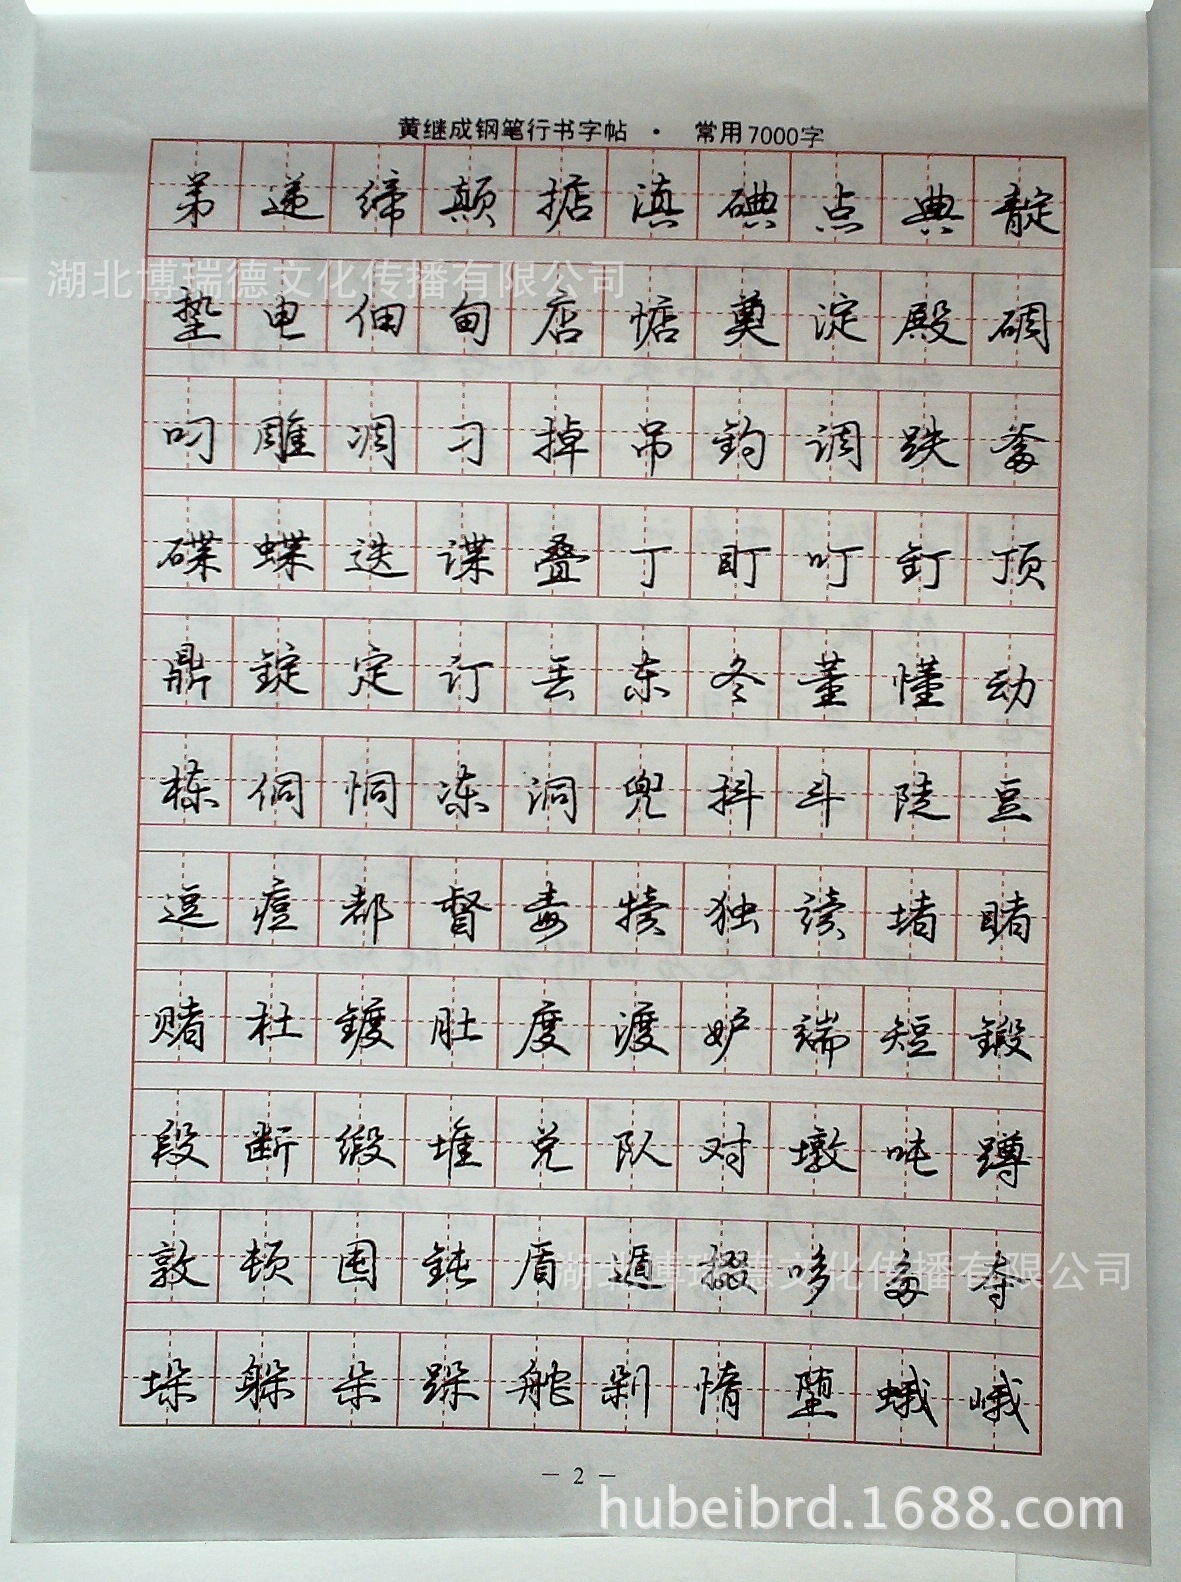 黄继成钢笔行书字帖 · 常用7000字
弟递缔颠掂滇碘点典靛
湖北博瑞德文化传播有限公司
垫电佃甸店惦奠淀殿碉
叼雕凋刁掉吊钓调跌爹
碟蝶迭谍叠丁盯叮钉顶
鼎锭定订丢东冬董懂动
栋侗恫冻洞兜抖斗陡豆
逗痘都督毒犊独读堵睹
赌杜镀肚度渡妒端短锻
段断缎堆兑队对墩吨蹲
敦顿囤钝盾遁掇哆多夺
湖北博瑞德文化传播有限公司
垛躲朵跺舵剁惰堕蛾峨
— 2 —
hubeibrd.1688.com